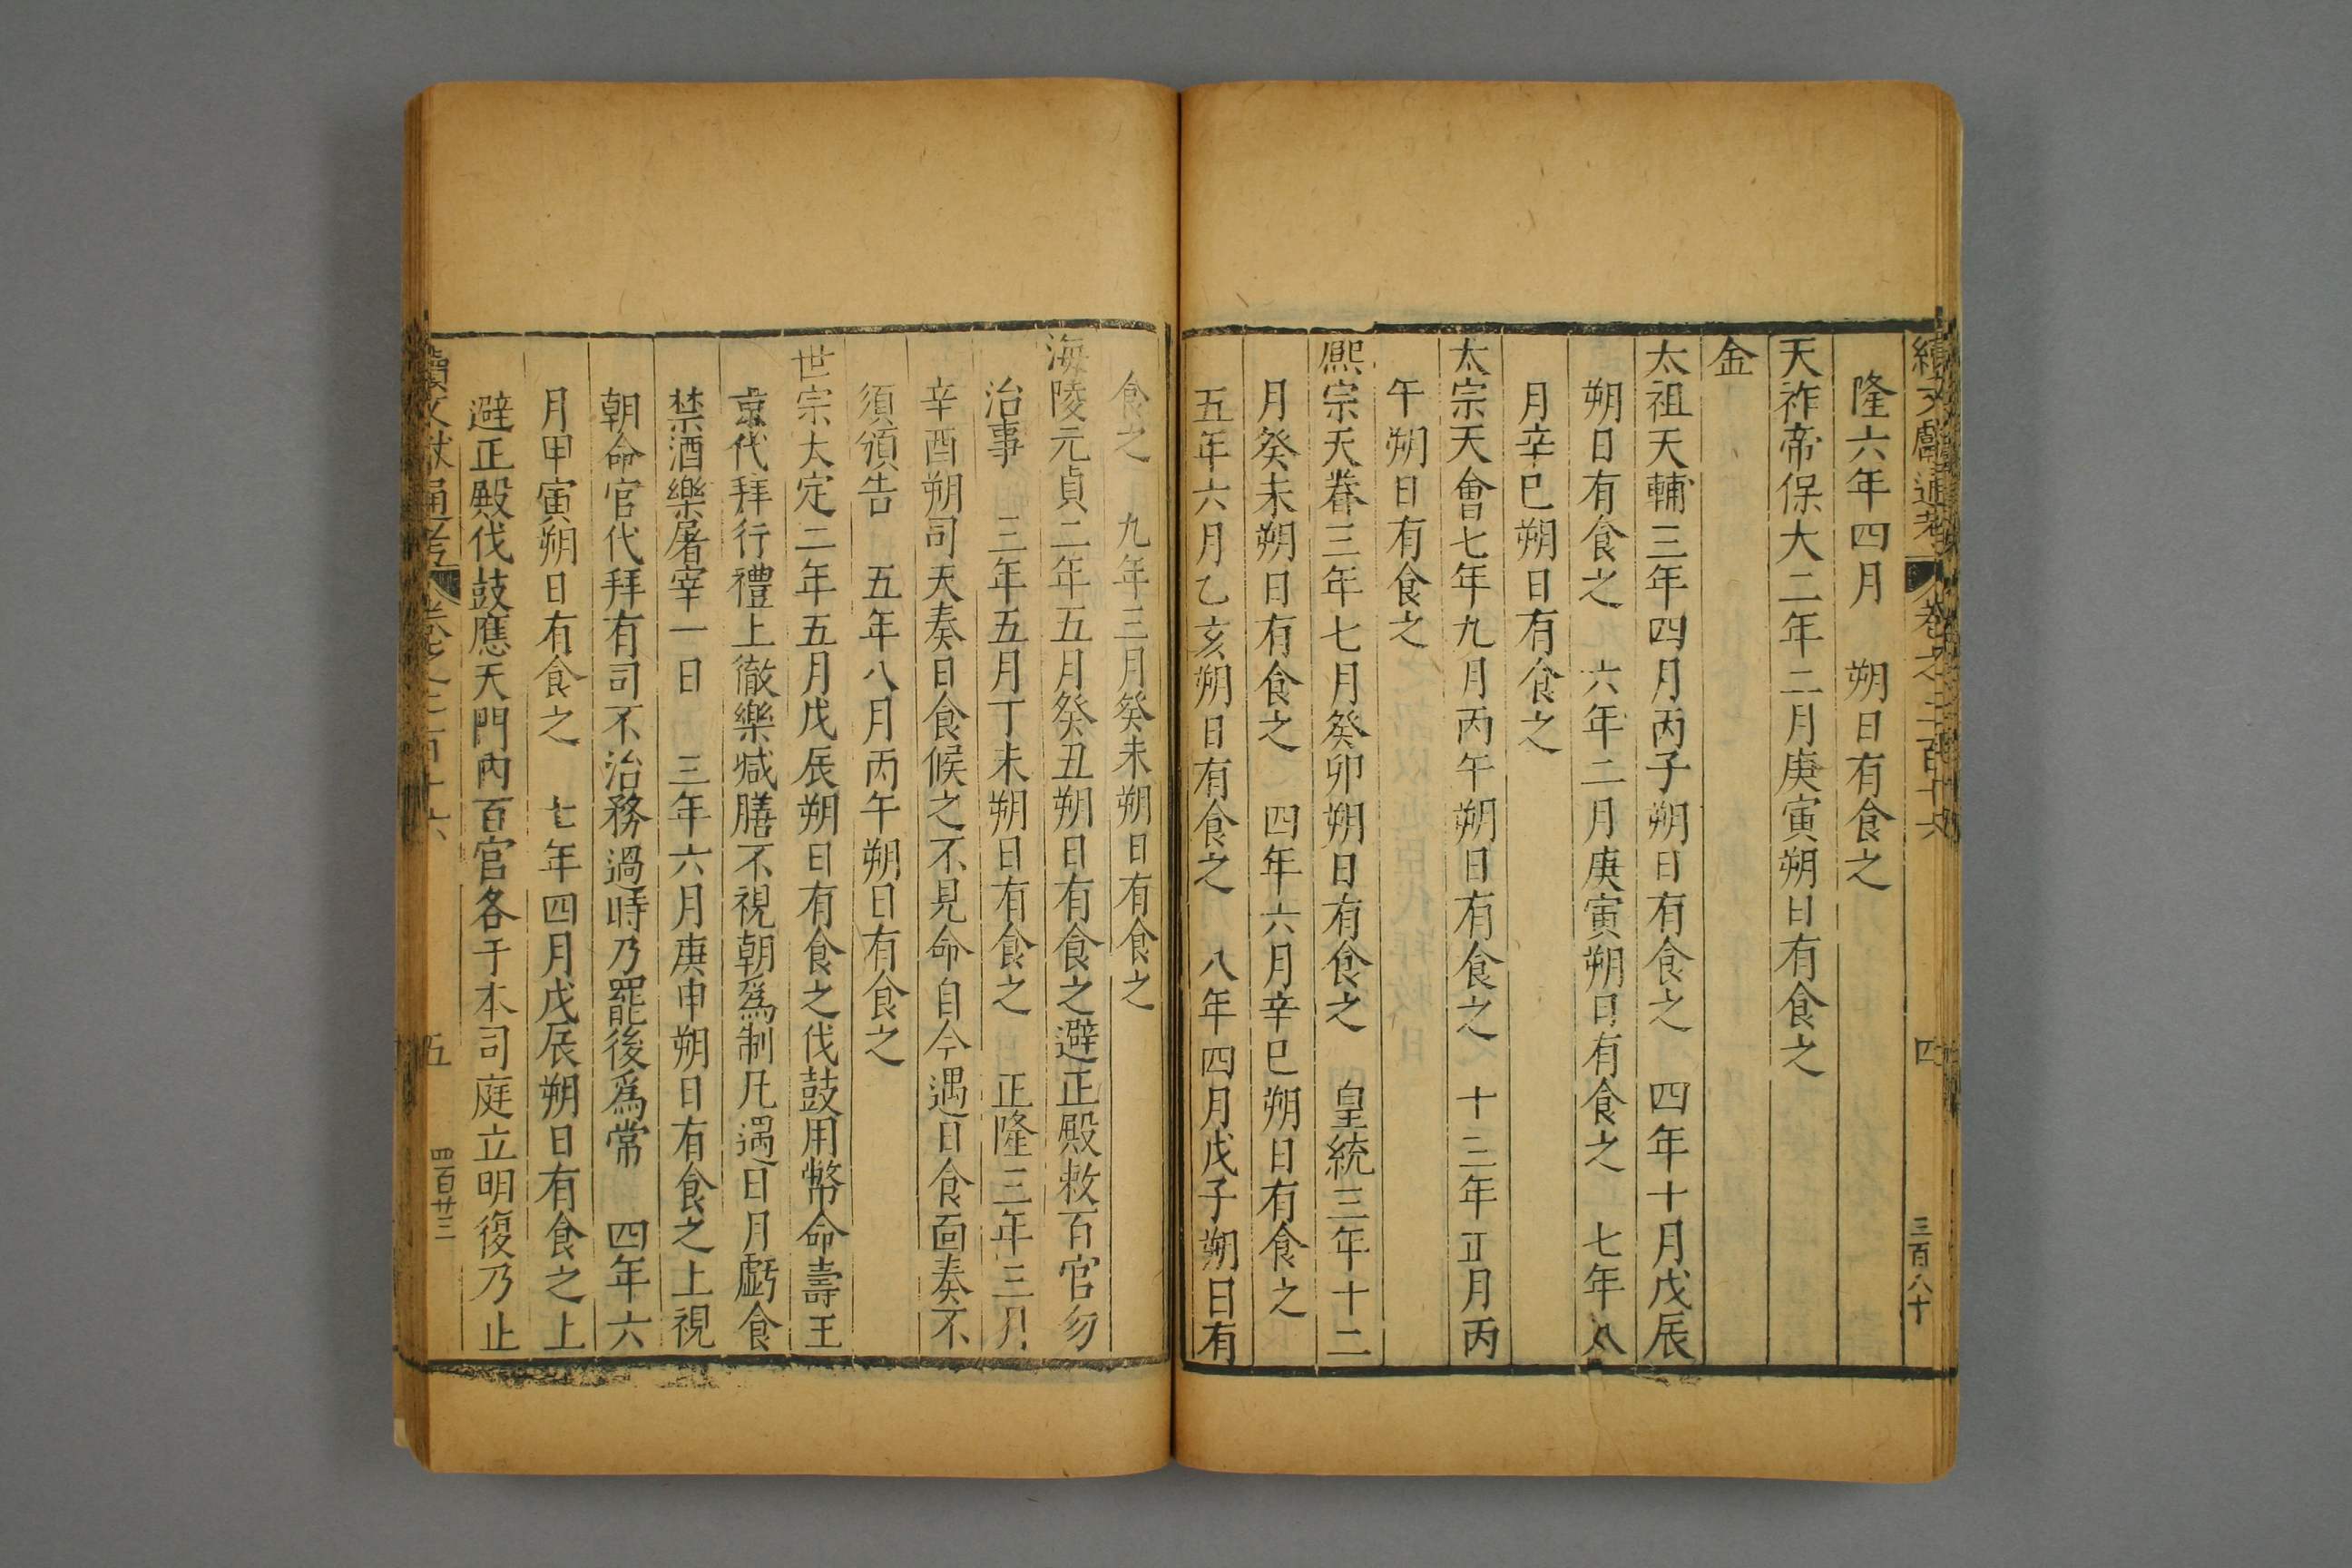 續文獻通考 卷之二百十六 四 三百八十
隆六年四月 朔日有食之
天祚帝保大二年二月庚寅朔日有食之
金
太祖天輔三年四月丙子朔日有食之 四年十月戊辰
朔日有食之 六年二月庚寅朔日有食之 七年八
月辛巳朔日有食之
太宗天會七年九月丙午朔日有食之 十三年正月丙
午朔日有食之
熙宗天眷三年七月癸卯朔日有食之 皇統三年十二
月癸未朔日有食之 四年六月辛巳朔日有食之
五年六月乙亥朔日有食之 八年四月戊子朔日有
食之 九年三月癸未朔日有食之
海陵元貞二年五月癸丑朔日有食之避正殿敕百官勿
治事 三年五月丁未朔日有食之 正隆三年三月
辛酉朔司天奏日食候之不見命自今遇日食面奏不
須頒告 五年八月丙午朔日有食之
世宗大定二年五月戊辰朔日有食之伐鼓用幣命壽王
京代拜行禮上徹樂減膳不視朝爲制凡遇日月虧食
禁酒樂屠宰一日 三年六月庚申朔日有食之上視
朝命官代拜有司不治務過時乃罷後爲常 四年六
月甲寅朔日有食之 七年四月戊辰朔日有食之上
避正殿伐鼓應天門內百官各于本司庭立明復乃止
續文獻通考 卷之二百十六 五 四百廿三